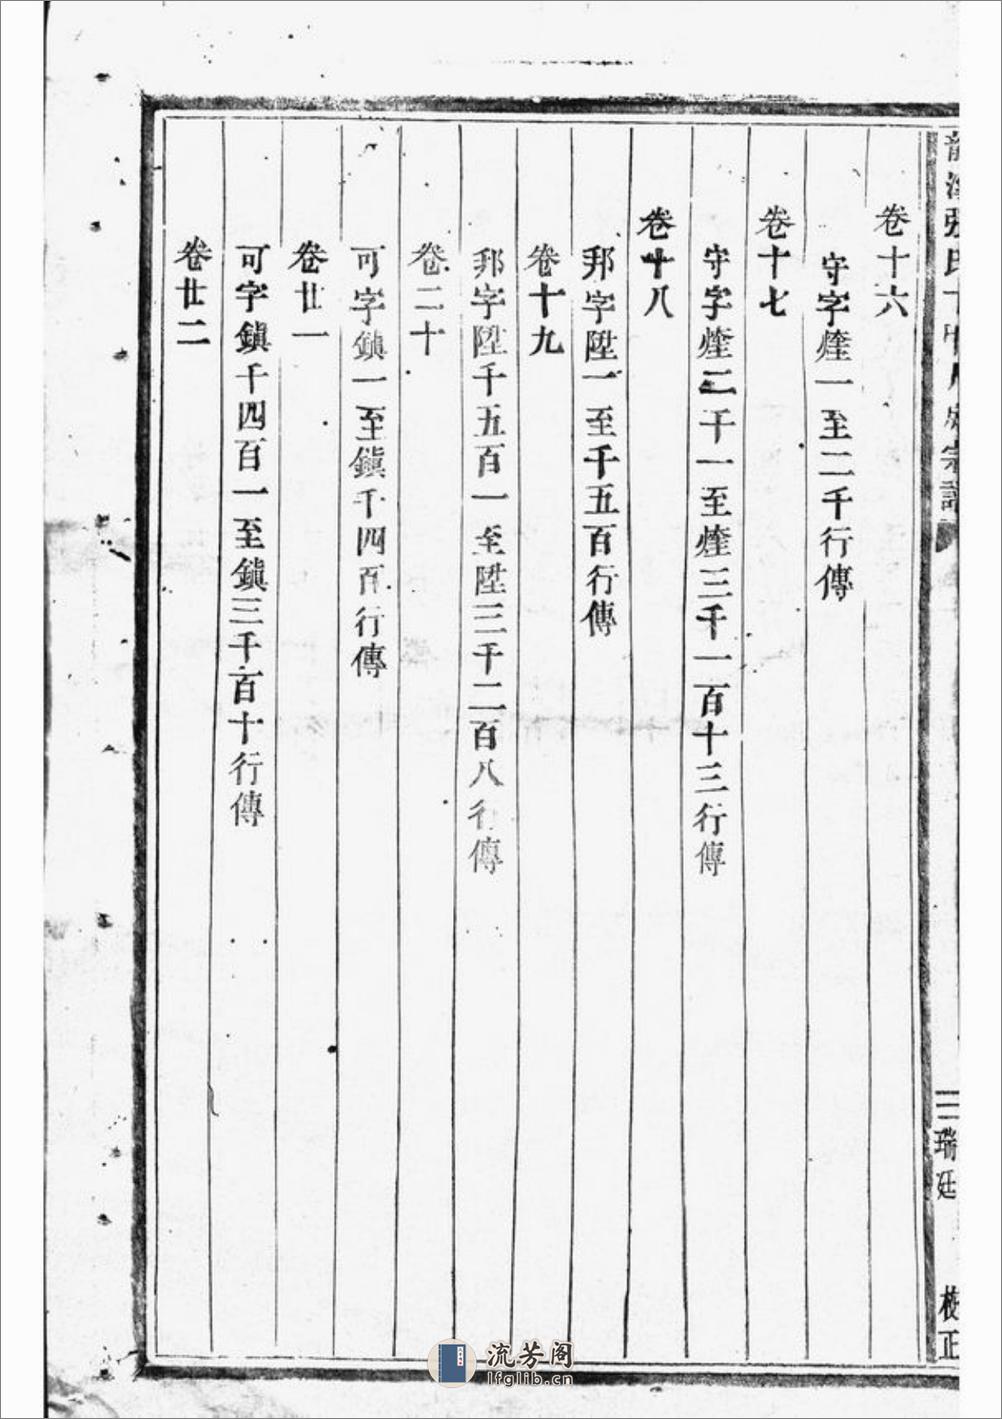 卷十六
守字燵一至二千行傳
卷十七
守字燵二千一至燵三千一百十三行傳
卷十八
邦字陞一至千五百行傳
卷十九
邦字陞千五百一至陞三千二百八行傳
卷二十
可字鎮一至鎮千四百行傳
卷廿一
可字鎮千四百一至鎮三千百十行傳
卷廿二
三
瑞廷
校正
流芳阁
lfglib.cn